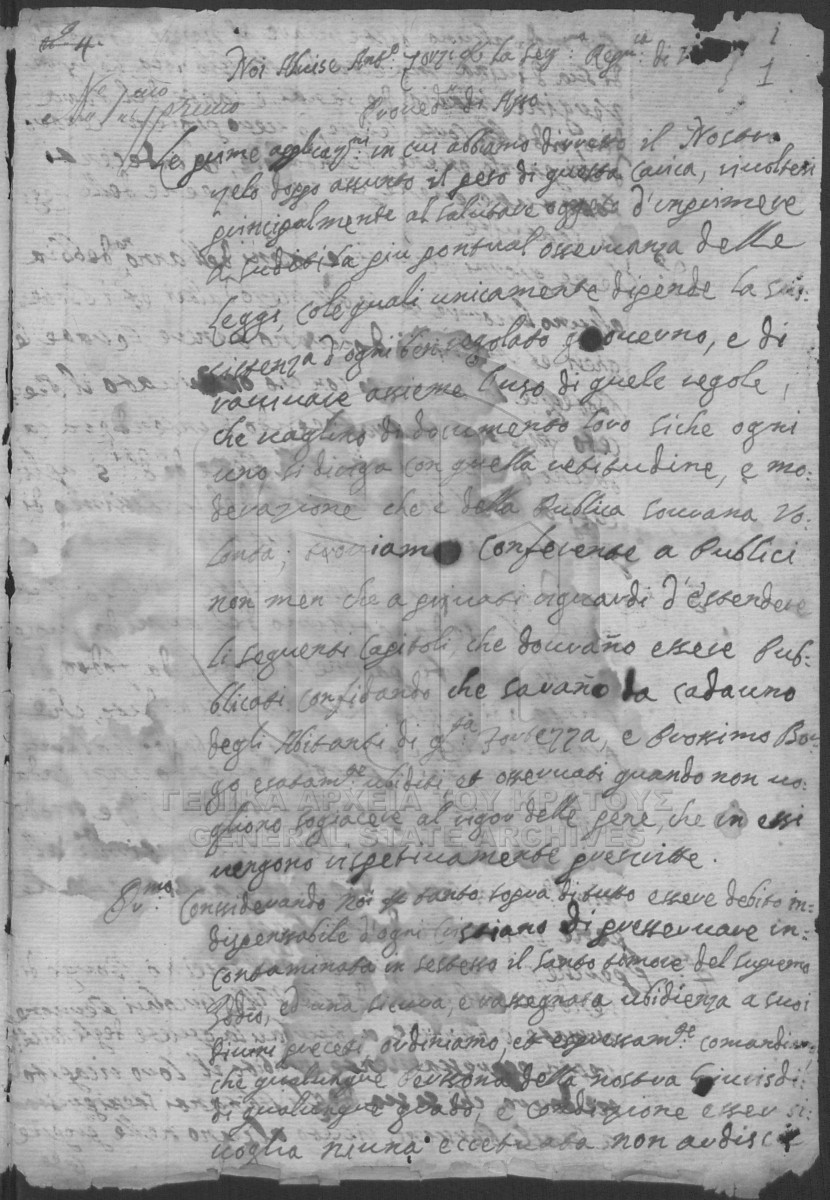 4.
1
1
Noi Aluise Ant.º Zorzi p la Ser.ma Rep.ca di
Proved.r di Asso
Le prime applicaz.ni in cui abbiamo diretto il Nostro
zelo doppo assunto il peso di questa Carica, rivoltesi
principalmente al salutare oggetto d'imprimere
a sudditi la piu pontual osservanza delle
Leggi, cole quali unicamente dipende la sus:
sistenza d'ogni ben regolato governo, e di
ravivare assieme l'uso di quele regole,
che vaglino di documento loro siche ogni
uno si diriga con quella retitudine, e mo:
derazione che è della Publica Sovrana Vo:
lontà; troviamo conferente a Publici
non men che a privati riguardi d'estendere
li seguenti Capitoli, che dovrano essere Pub:
blicati confidando che sarano da cadauno
degli Abitanti di q.sta Fortezza, e Prossimo Bor:
go esatam.te ubiditi, et osservati quando non vo:
gliono sogiacere al rigor delle pene, che in essi
vengono rispetivamente prescritte.
P.mo Considerando Noi p tanto sopra di tutto essere debito in:
dispensabile d'ogni Cristiano di preservare in:
contaminata in sestesso il santo timore del supremo
Iddio, ed una sicura, e rassegnata ubidienza a suoi
Divini precetti, ordiniamo, et espressam.te comandiamo,
che qualunque Persona della nostra Giurisdi:
di qualunque grado, e condizione esser si
voglia niuna eccetuata non ardisca
ΓΕΝΙΚΑ ΑΡΧΕΙΑ ΤΟΥ ΚΡΑΤΟΥΣ
GENERAL STATE ARCHIVES